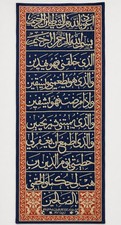 بسم الله الرحمن الرحيم
الذي خلقني فهو يهدين
والذي هو يطعمني ويسقين
وإذا مرضت فهو يشفين
والذي يميتني ثم يحيين
والذي أطمع أن يغفر لي
خطيئتي يوم الدين رب
هب لي حكما وألحقني
بالصالحين